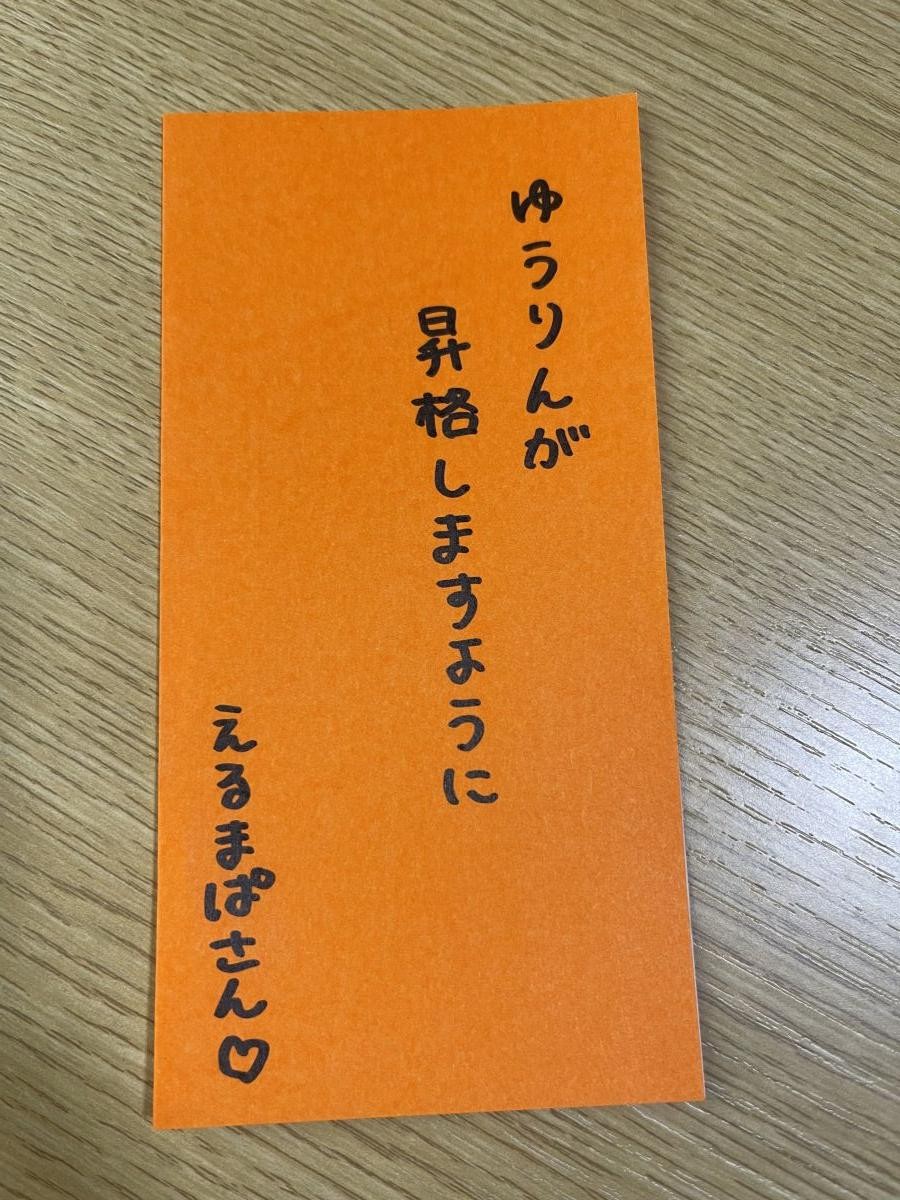 ゆうりんが
昇格しますように
えるまぱさん♡